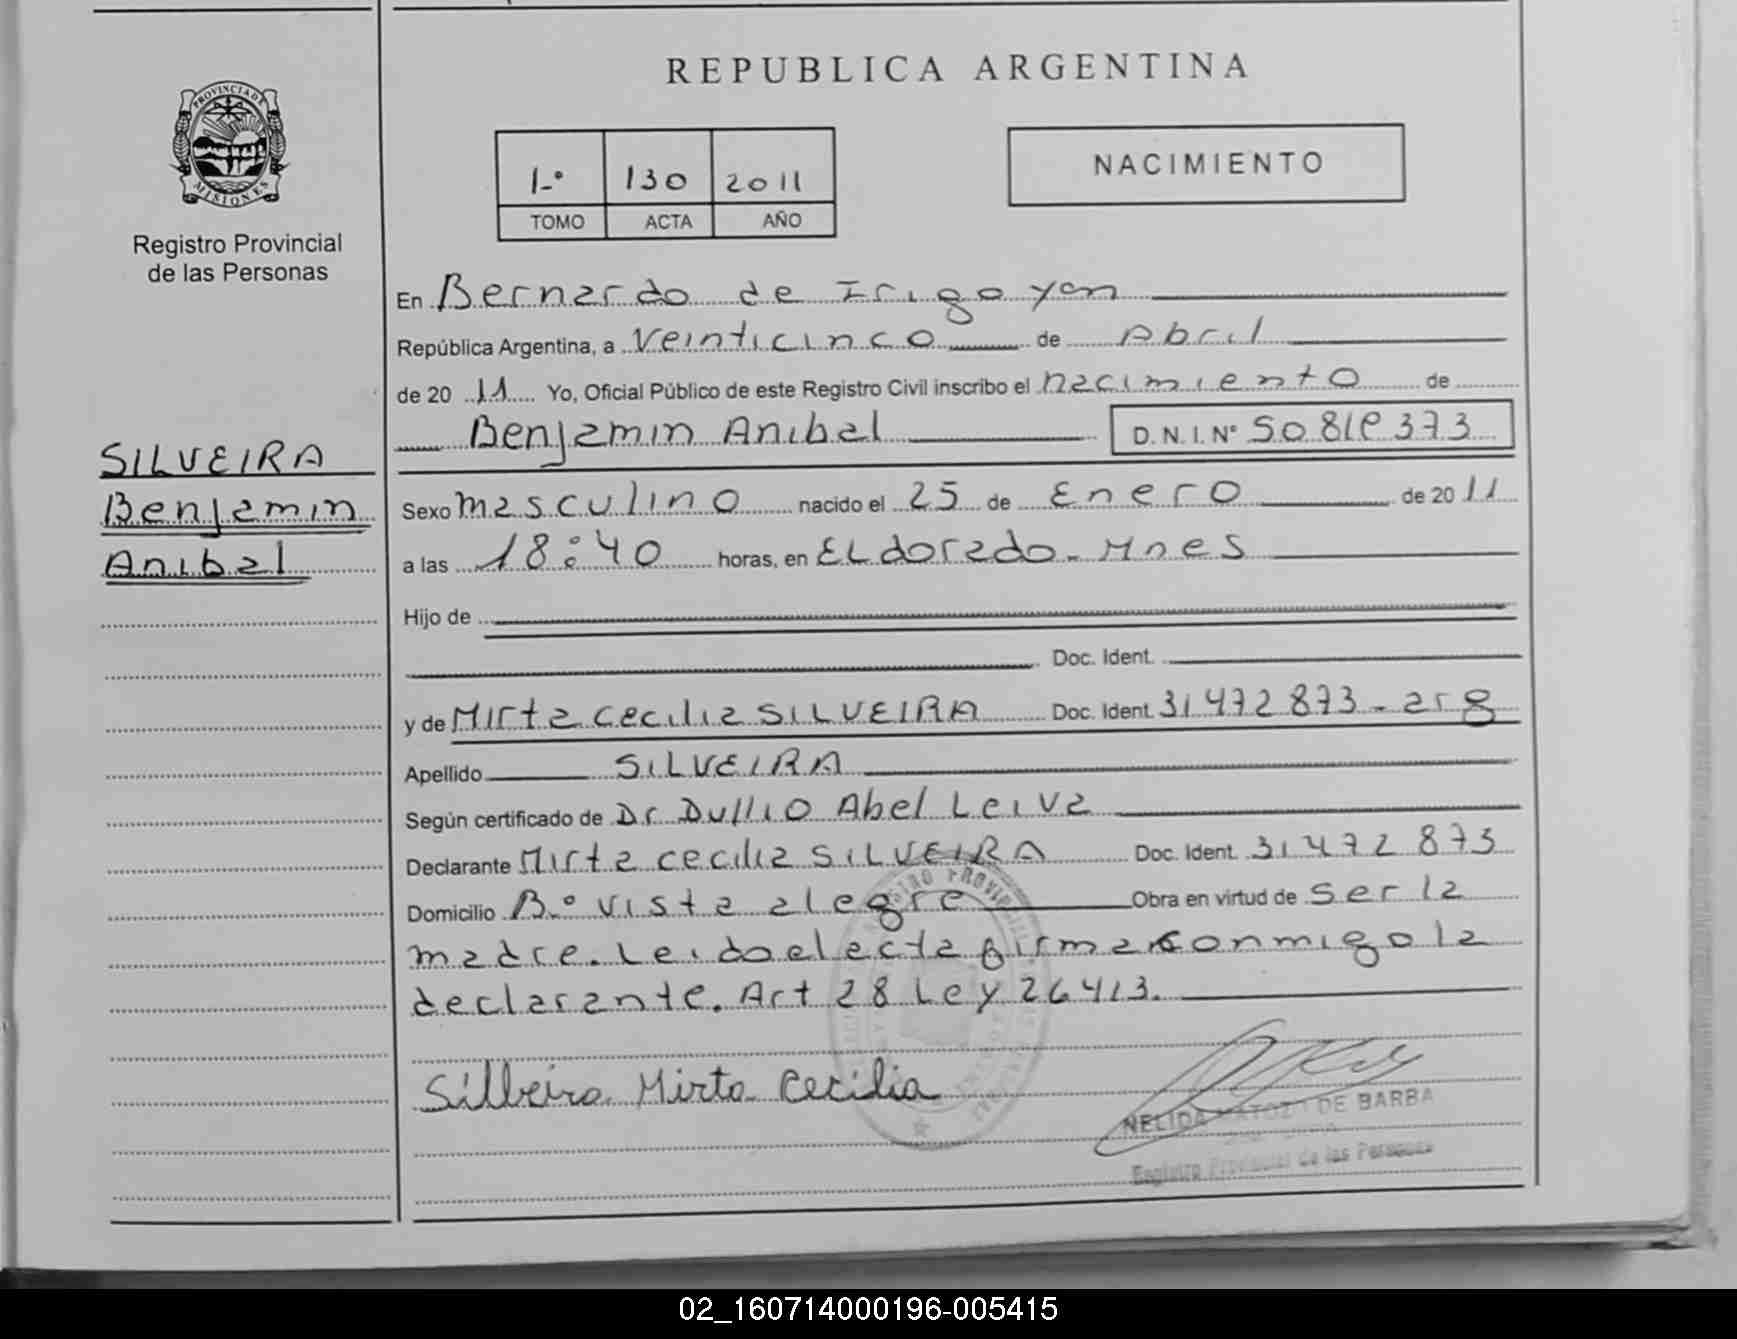 REPUBLICA ARGENTINA
PROVINCIA DE MISIONES
Registro Provincial
de las Personas
1-º 130 2011
TOMO ACTA AÑO
NACIMIENTO
En Bernardo de Irigoyen
República Argentina, a Veinticinco de Abril
de 2011 Yo, Oficial Público de este Registro Civil inscribo el nacimiento de
Benjamin Anibal D.N.I.Nº
SILVEIRA
Benjamin
Anibal
Sexo masculino nacido el 25 de Enero de 2011
a las 18:40 horas, en ELdorado-Mnes
Hijo de
Doc. Ident.
y de Mirta cecilia SILVEIRA Doc. Ident. 31472873-arg
Apellido SILVEIRA
Según certificado de Dr. Dullio Abel Leiva
Declarante Mirta cecilia SILVEIRA Doc. Ident. 31472873
Domicilio B.º vista alegre Obra en virtud de ser la
madre. Leido el acta firma conmigo la
declarante. Art 28 Ley 26413.
Silbeira Mirta Cecilia
NELIDA DE BARBA
Registro Provincial de las Personas
02_160714000196-005415